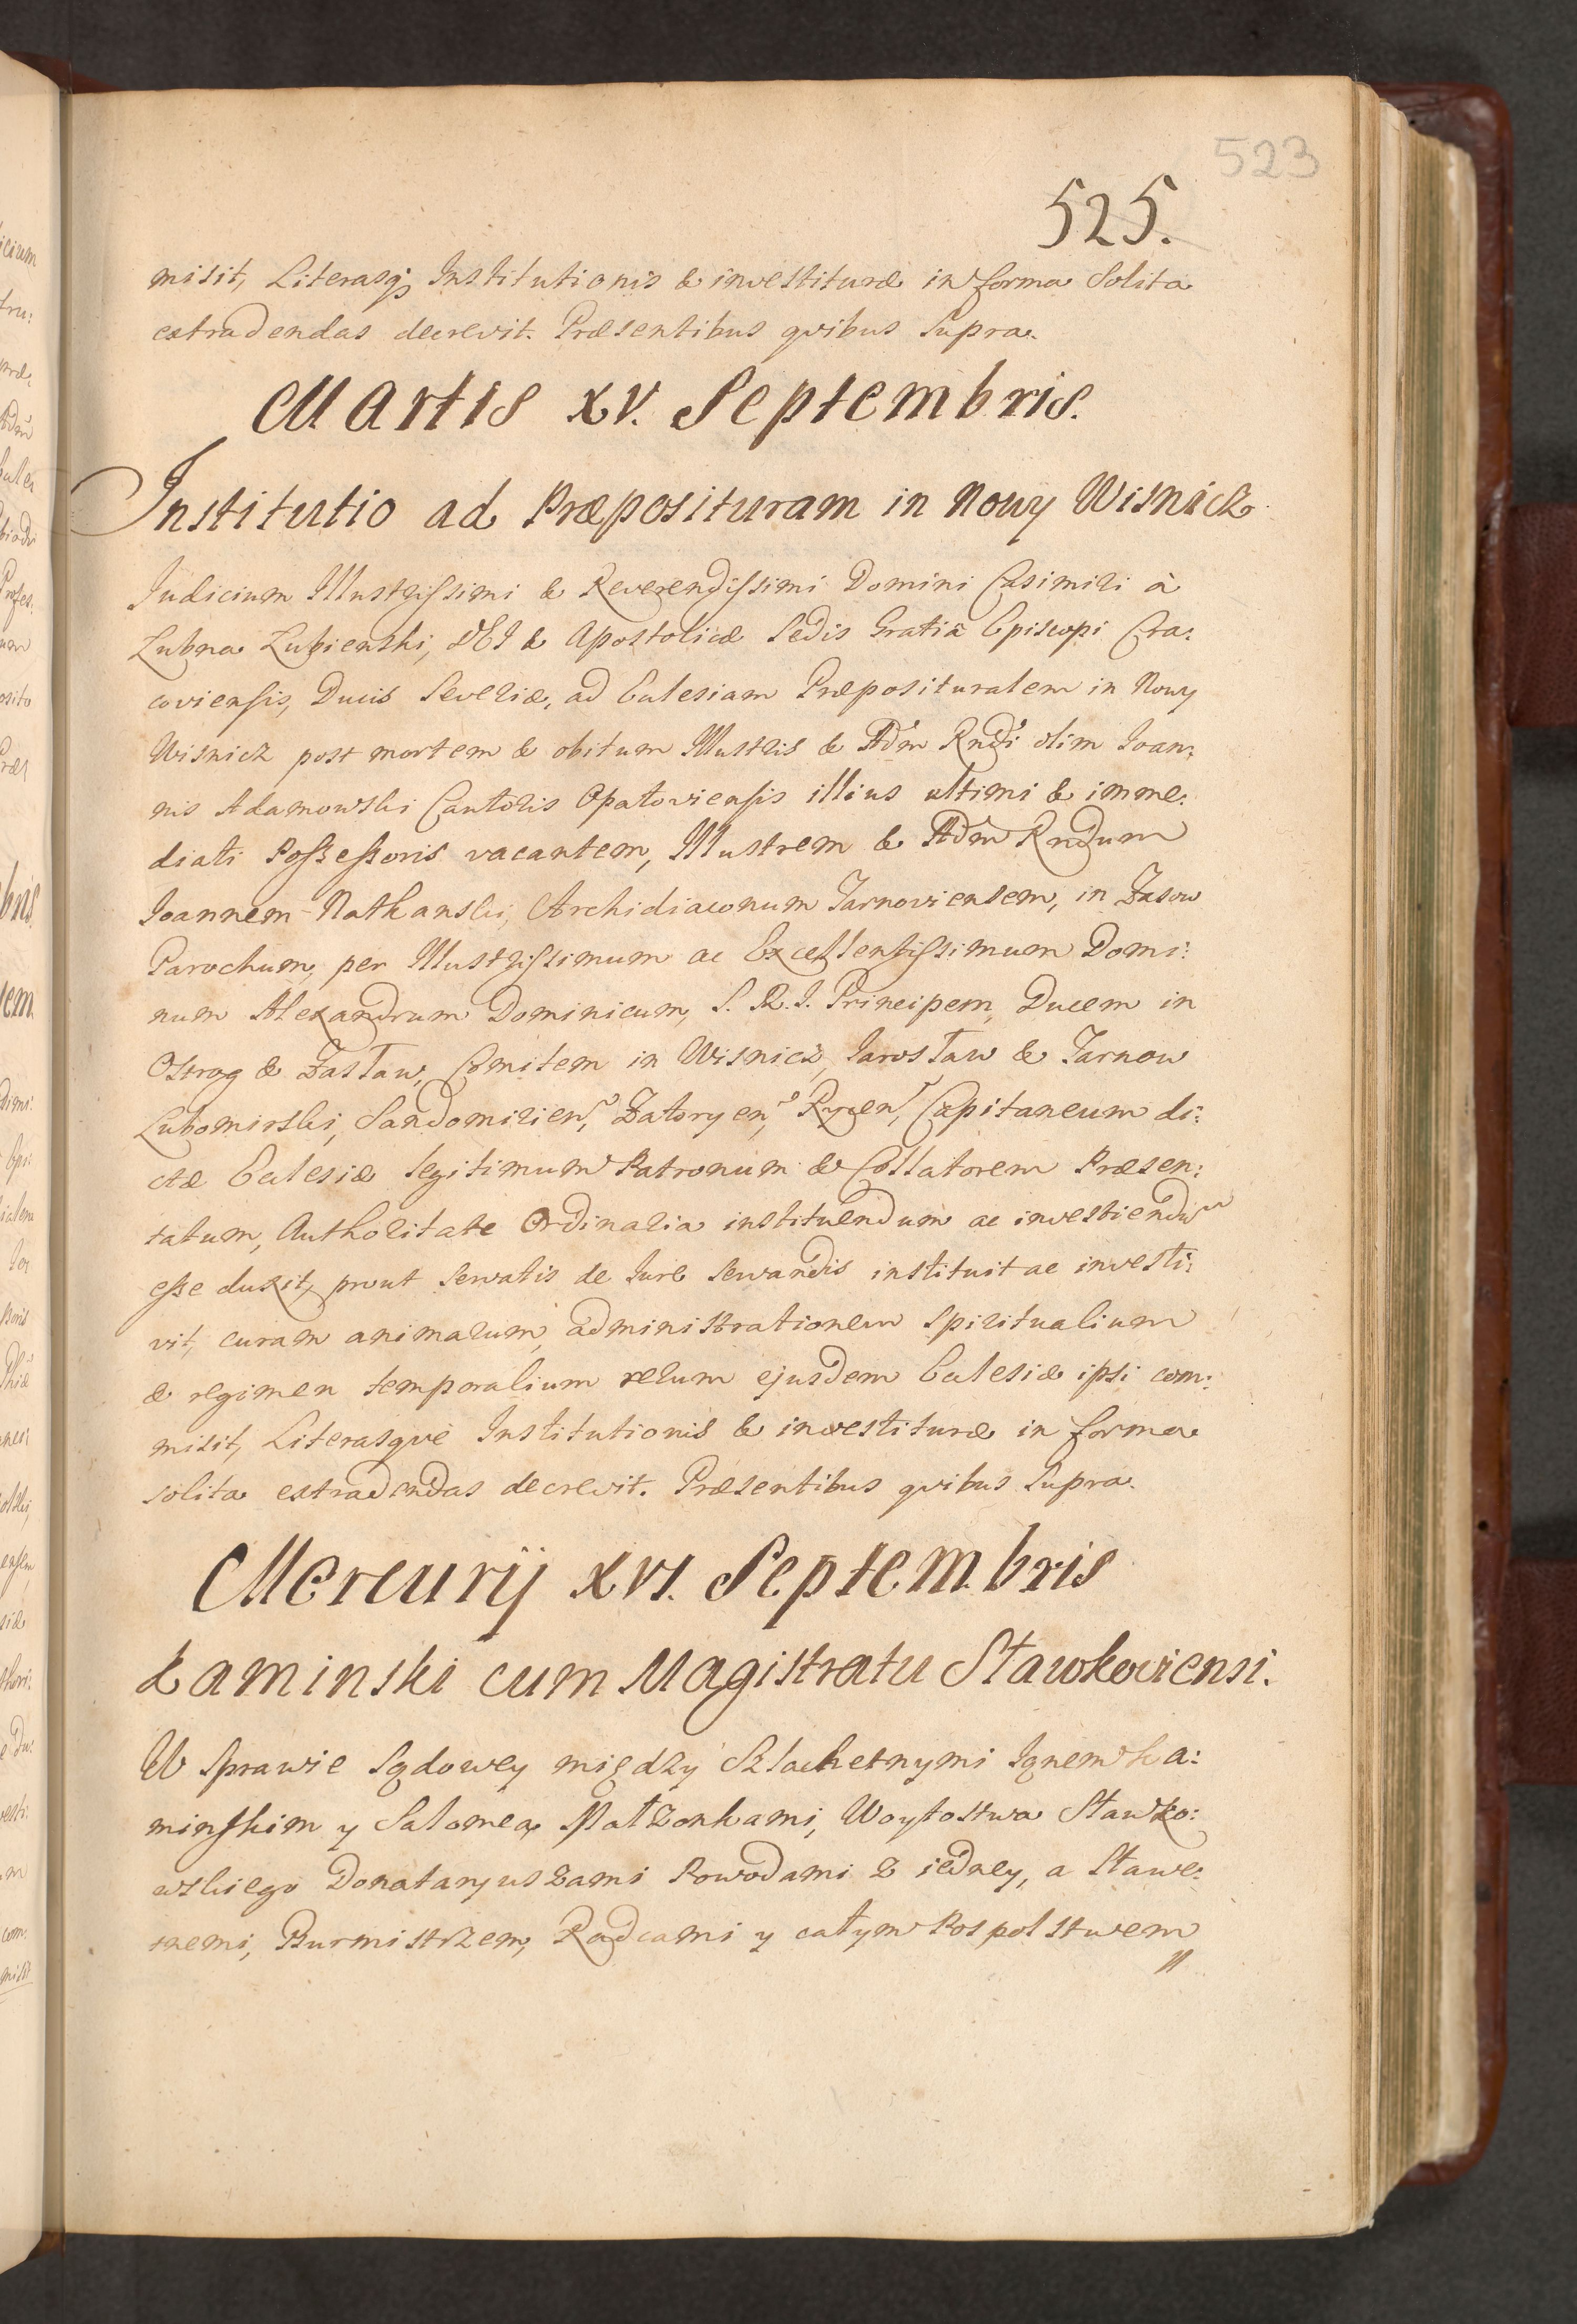 523
525.
misit, Literasq; Institutionis & investituræ in forma Solita
extradendas decrevit. Præsentibus qvibus Supra.
Martis XV. Septembris.
Institutio ad Præposituram in Nowy Wisnicz
Judicium Illustrissimi & Reverendissimi Domini Casimiri à
Lubna Lubienski, DEI & Apostolicæ Sedis Gratiâ Episcopi Cra:
coviensis, Ducis Severiæ, ad Ecclesiam Præposituralem in Nowy
Wisnicz post mortem & obitum Illustris & Adm Rndi olim Joan:
nis Adamowski Cantoris Opatoviensis illius ultimi & imme:
diati Possessoris vacantem, Illustrem & Adm Rndum
Joannem Nathanski, Archidiaconum Tarnoviensem, in Zasow
Parochum, per Illustrissimum ac Excellentissimum Domi:
num Alexandrum Dominicum, S. R. I. Principem, Ducem in
Ostrog & Zasław, Comitem in Wisnicz, Jarosław & Tarnow
Lubomirski, Sandomirien, Zatoryen, Rycen, Capitaneum di:
ctæ Ecclesiæ legitimum Patronum & Collatorem Præsen:
tatum, Authoritate Ordinaria instituendum ac investiendum
esse duxit, prout servatis de Jure servandis instituit ac investi:
vit, curam animarum, administrationem Spiritualium
& regimen temporalium rerum ejusdem Ecclesiæ ipsi com:
misit, Literasqve Institutionis & investituræ in forma
solita extradendas decrevit. Præsentibus qvibus Supra.
Mercurij XVI. Septembris
Kaminski cum Magistratu Sławkoviensi.
W Sprawie Sądowey między Szlachetnymi Janem Ka:
minskim y Salomeą Małżonkami, Woytostwa Sławko:
wskiego Donataryuszami Powodami z iedney, a Sławe:
tnemi, Burmistrzem, Radcami y całym Pospolstwem